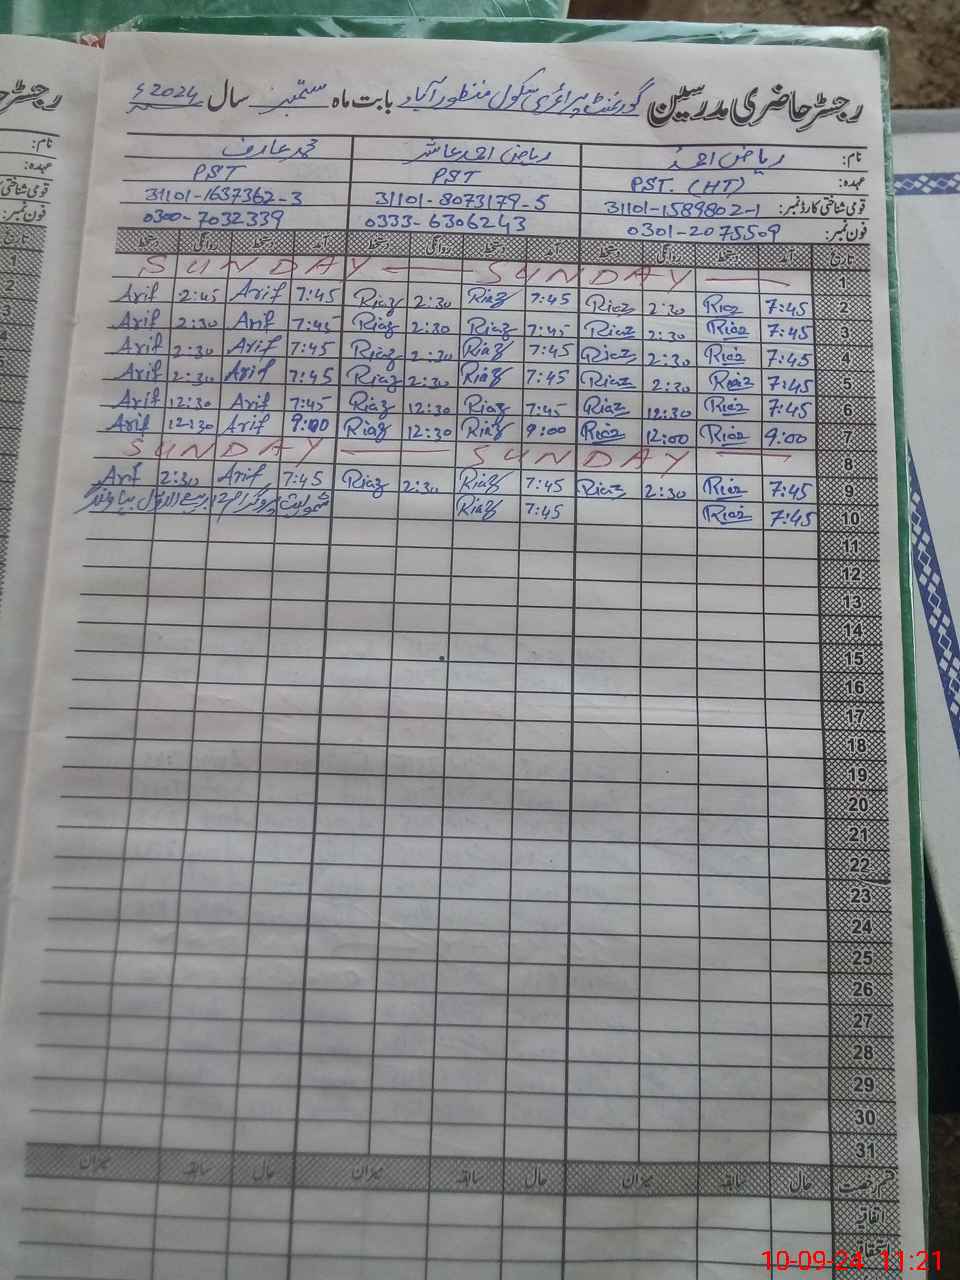 رجسٹر حاضری مدرسین گورنمنٹ پرائمری سکول منظور آباد بابت ماہ ستمبر سال 2024ء
نام: ریاض احمد ریاض احمد عاشر محمد عارف
عہدہ: PST. (HT) PST PST
قومی شناختی کارڈ نمبر: 31101-1589802-1 31101-8073179-5 31101-1637362-3
فون نمبر: 0301-2075509 0333-6306243 0300-7032339
تاریخ آمد دستخط روانگی دستخط آمد دستخط روانگی دستخط آمد دستخط روانگی دستخط
1 SUNDAY SUNDAY
2 7:45 Riaz 2:30 Riaz 7:45 Riaz 2:30 Riaz 7:45 Arif 2:45 Arif
3 7:45 Riaz 2:30 Riaz 7:45 Riaz 2:30 Riaz 7:45 Arif 2:30 Arif
4 7:45 Riaz 2:30 Riaz 7:45 Riaz 2:30 Riaz 7:45 Arif 2:30 Arif
5 7:45 Riaz 2:30 Riaz 7:45 Riaz 2:30 Riaz 7:45 Arif 2:30 Arif
6 7:45 Riaz 12:30 Riaz 7:45 Riaz 12:30 Riaz 7:45 Arif 12:30 Arif
7 9:00 Riaz 12:00 Riaz 9:00 Riaz 12:30 Riaz 9:00 Arif 12:30 Arif
8 SUNDAY SUNDAY
9 7:45 Riaz 2:30 Riaz 7:45 Riaz 2:30 Riaz 7:45 Arif 2:30 Arif
10 7:45 Riaz 7:45 Riaz شمولیت پروگرام
11
12
13
14
15
16
17
18
19
20
21
22
23
24
25
26
27
28
29
30
31
قسم رخصت حال سابقہ میزان حال سابقہ میزان حال سابقہ میزان
اتفاقیہ
استحقاقیہ
10-09-24 11:21
رجسٹر
نام:
عہدہ:
قومی شناختی
فون نمبر:
تاریخ
1
2
3
4